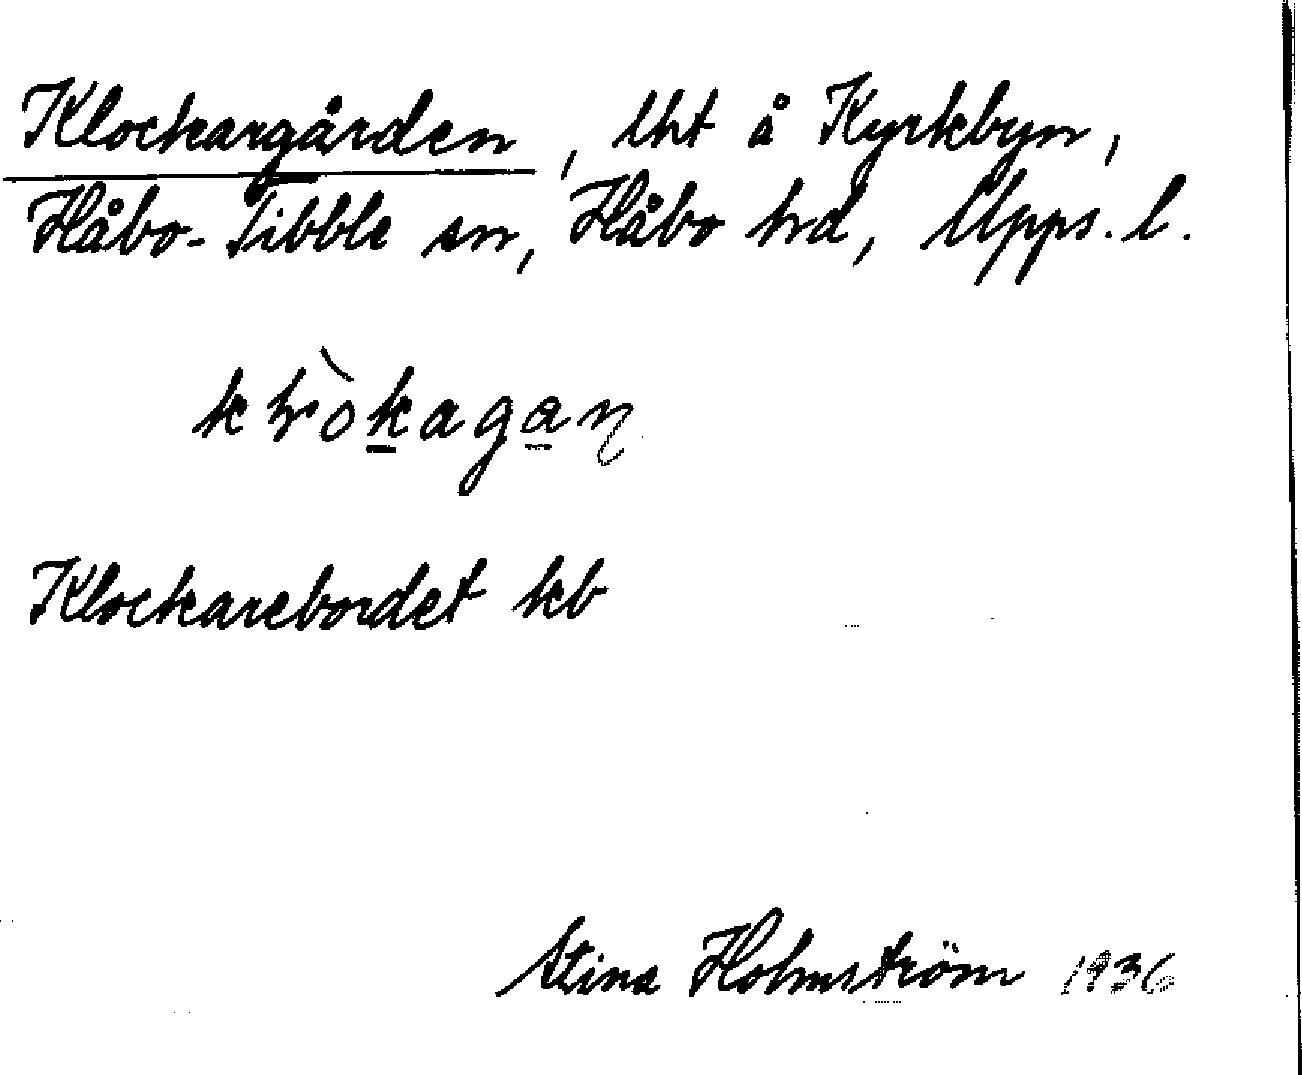 Klockargården, lht å Kyrkbyn,
Håbo-Tibble sn, Håbo hrd, Upps. l.
Klockarebordet kb
Stina Holmström 1936